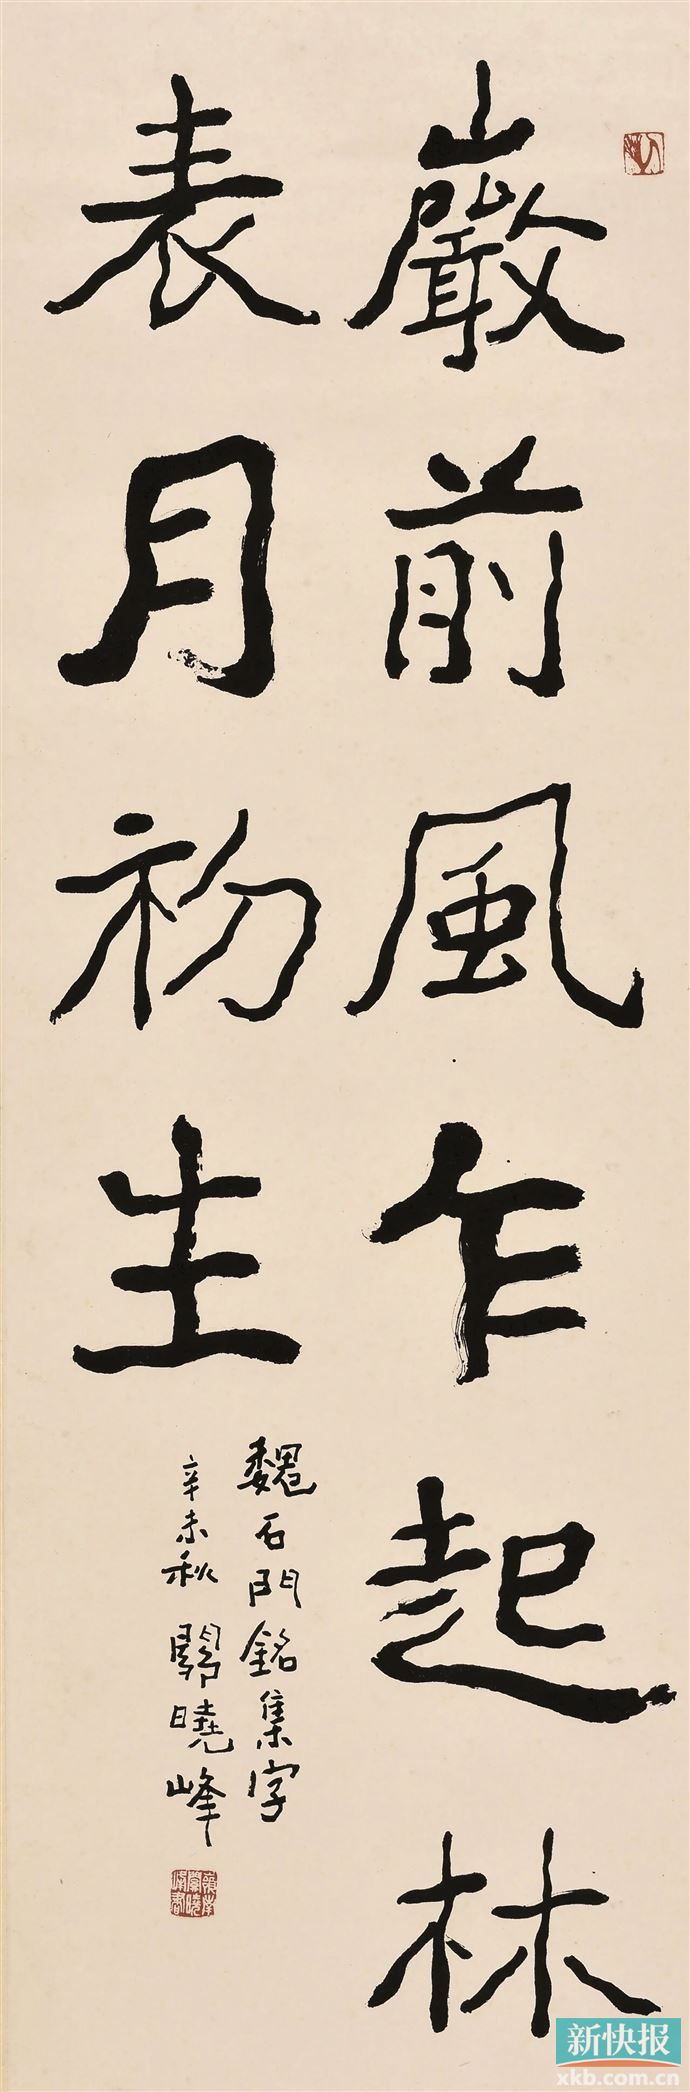 巖前風乍起林
表月初生
魏石門銘集字
辛未秋關曉峰
新快报
xkb.com.cn